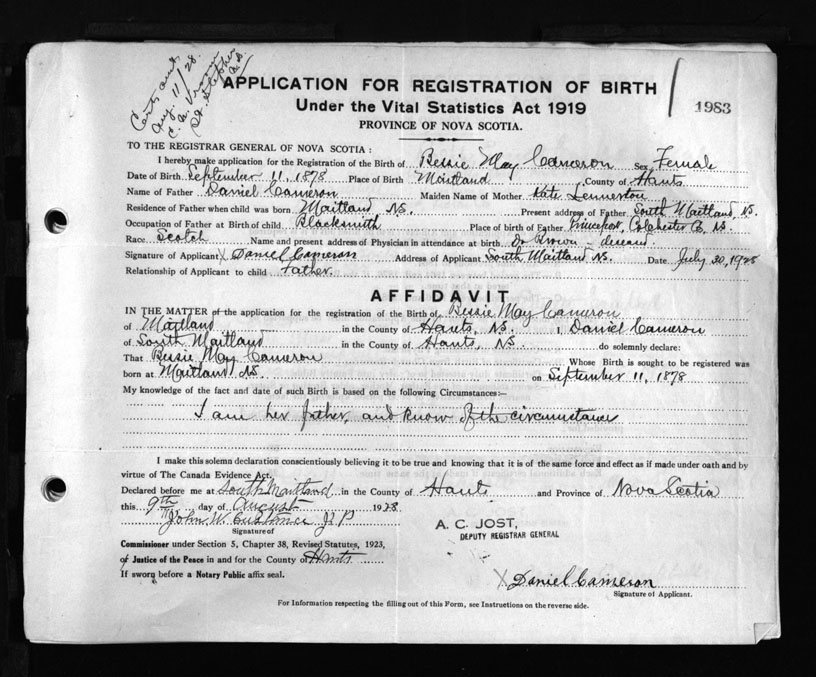 Aug. 11/28.
APPLICATION FOR REGISTRATION OF BIRTH
1983
Under the Vital Statistics Act 1919
PROVINCE OF NOVA SCOTIA.
TO THE REGISTRAR GENERAL OF NOVA SCOTIA :
I hereby make application for the Registration of the Birth of Bessie May Cameron Sex Female
Date of Birth September 11, 1878 Place of Birth Maitland , County of Hants
Name of Father Daniel Cameron Maiden Name of Mother Kate
Residence of Father when child was born Maitland N.S. Present address of Father South Maitland, N.S.
Occupation of Father at Birth of child Blacksmith Place of birth of Father Princeport, Colchester Co., N.S.
Race Scotch Name and present address of Physician in attendance at birth Dr Brown - deceased
Signature of Applicant X Daniel Cameron Address of Applicant South Maitland N.S. Date July 30, 1928
Relationship of Applicant to child Father
AFFIDAVIT
IN THE MATTER of the application for the registration of the Birth of Bessie May Cameron
of Maitland in the County of Hants, N.S. I, Daniel Cameron
of South Maitland in the County of Hants, N.S. do solemnly declare:
That Bessie May Cameron Whose Birth is sought to be registered was
born at Maitland N.S. on September 11, 1878
My knowledge of the fact and date of such Birth is based on the following Circumstances:—
I am her father, and know of the circumstances
I make this solemn declaration conscientiously believing it to be true and knowing that it is of the same force and effect as if made under oath and by
virtue of The Canada Evidence Act.
Declared before me at South Maitland in the County of Hants and Province of Nova Scotia
this 9th day of August 1928
John W. Custance J.P.
Signature of
A. C. JOST,
DEPUTY REGISTRAR GENERAL
Commissioner under Section 5, Chapter 38, Revised Statutes, 1923,
of Justice of the Peace in and for the County of Hants
If sworn before a Notary Public affix seal.
X Daniel Cameron
Signature of Applicant.
For Information respecting the filling out of this Form, see Instructions on the reverse side.